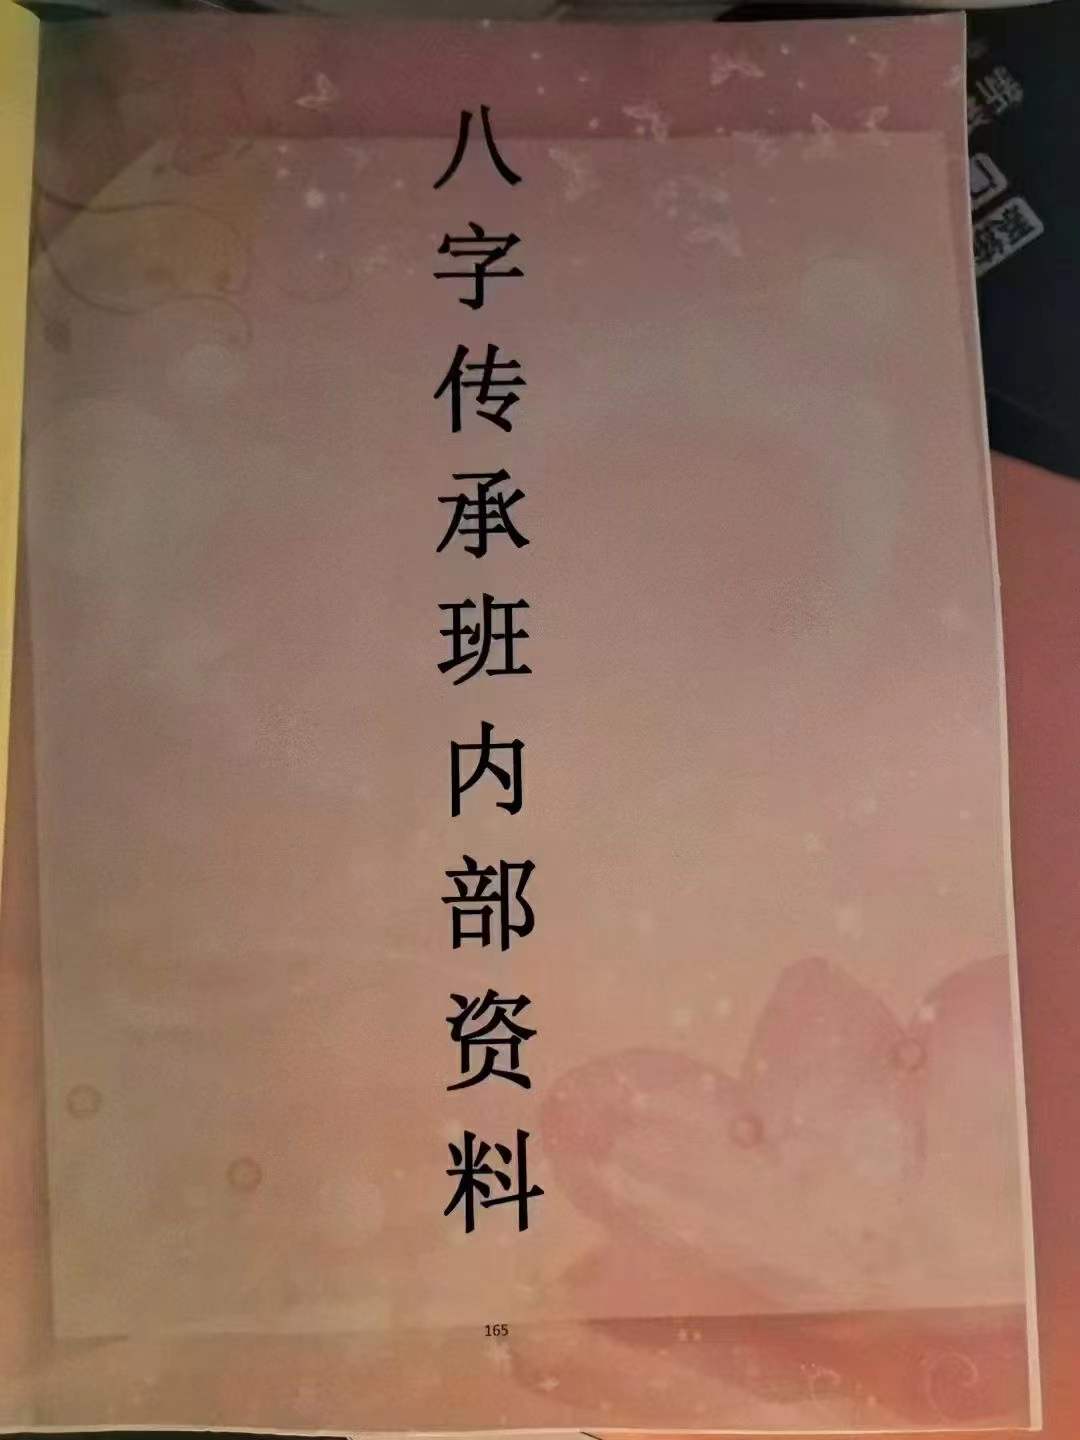 八字传承班内部资料
165